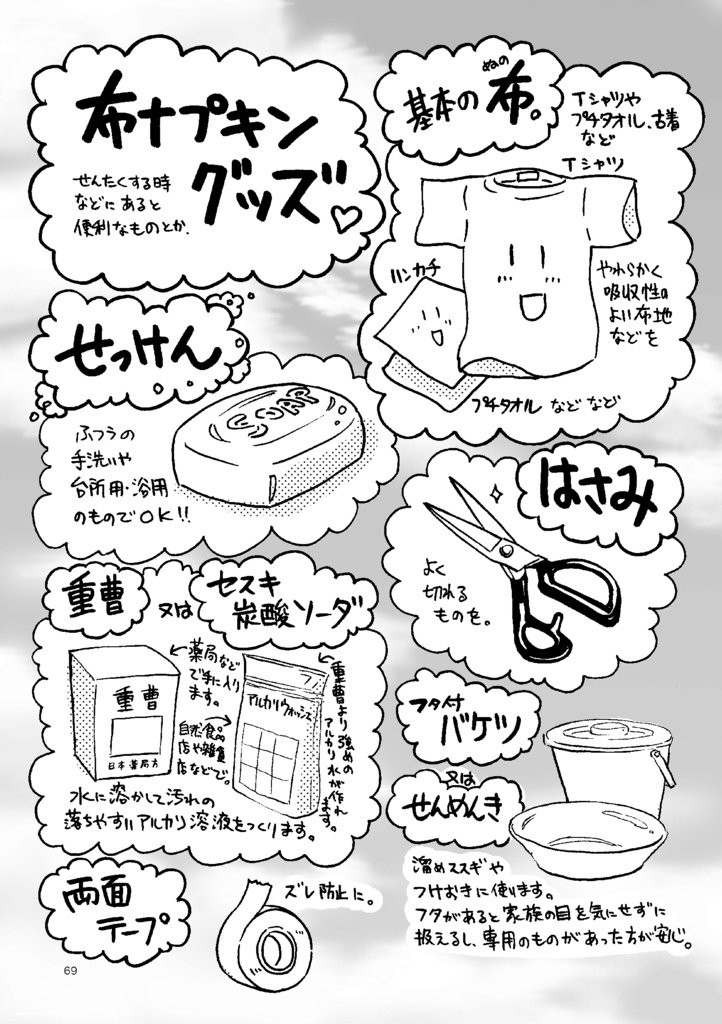 布ナプキン
グッズ♡
せんたくする時
などにあると
便利なものとか.
基本の布。
ぬの
Tシャツや
プチタオル、古着
など
Tシャツ
ハンカチ
やわらかく
吸収性の
よい布地
などを
プチタオル などなど
せっけん
SOAP
ふつうの
手洗いや
台所用・浴用
のものでOK!!
はさみ
よく
切れる
ものを。
重曹
又は
セスキ
炭酸ソーダ
重曹
日本薬局方
←薬局など
で手に入り
ます。
自然食品
店や雑貨
店などで。
アルカリウォッシュ
重曹より強めの
アルカリ水が作れ
ます。
水に溶かして汚れの
落ちやすいアルカリ溶液をつくります。
フタ付
バケツ
又は
せんめんき
溜めススギや
つけおきに使います。
フタがあると家族の目を気にせずに
扱えるし、専用のものがあった方が安心。
両面
テープ
ズレ防止に。
69